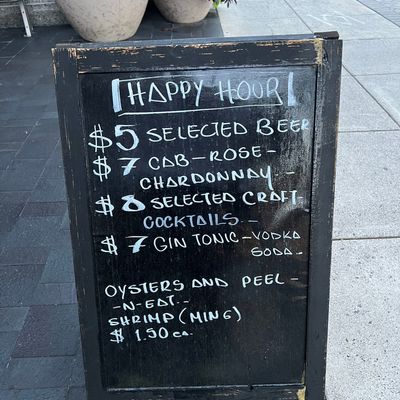 HAPPY HOUR
$5 SELECTED BEER
$7 CAB-ROSE-
CHARDONNAY -
$8 SELECTED CRAFT-
COCKTAILS -
$7 GIN TONIC-VODKA
SODA-
OYSTERS AND PEEL -
-N-EAT.-
SHRIMP (MIN6)
$ 1.50 ea.